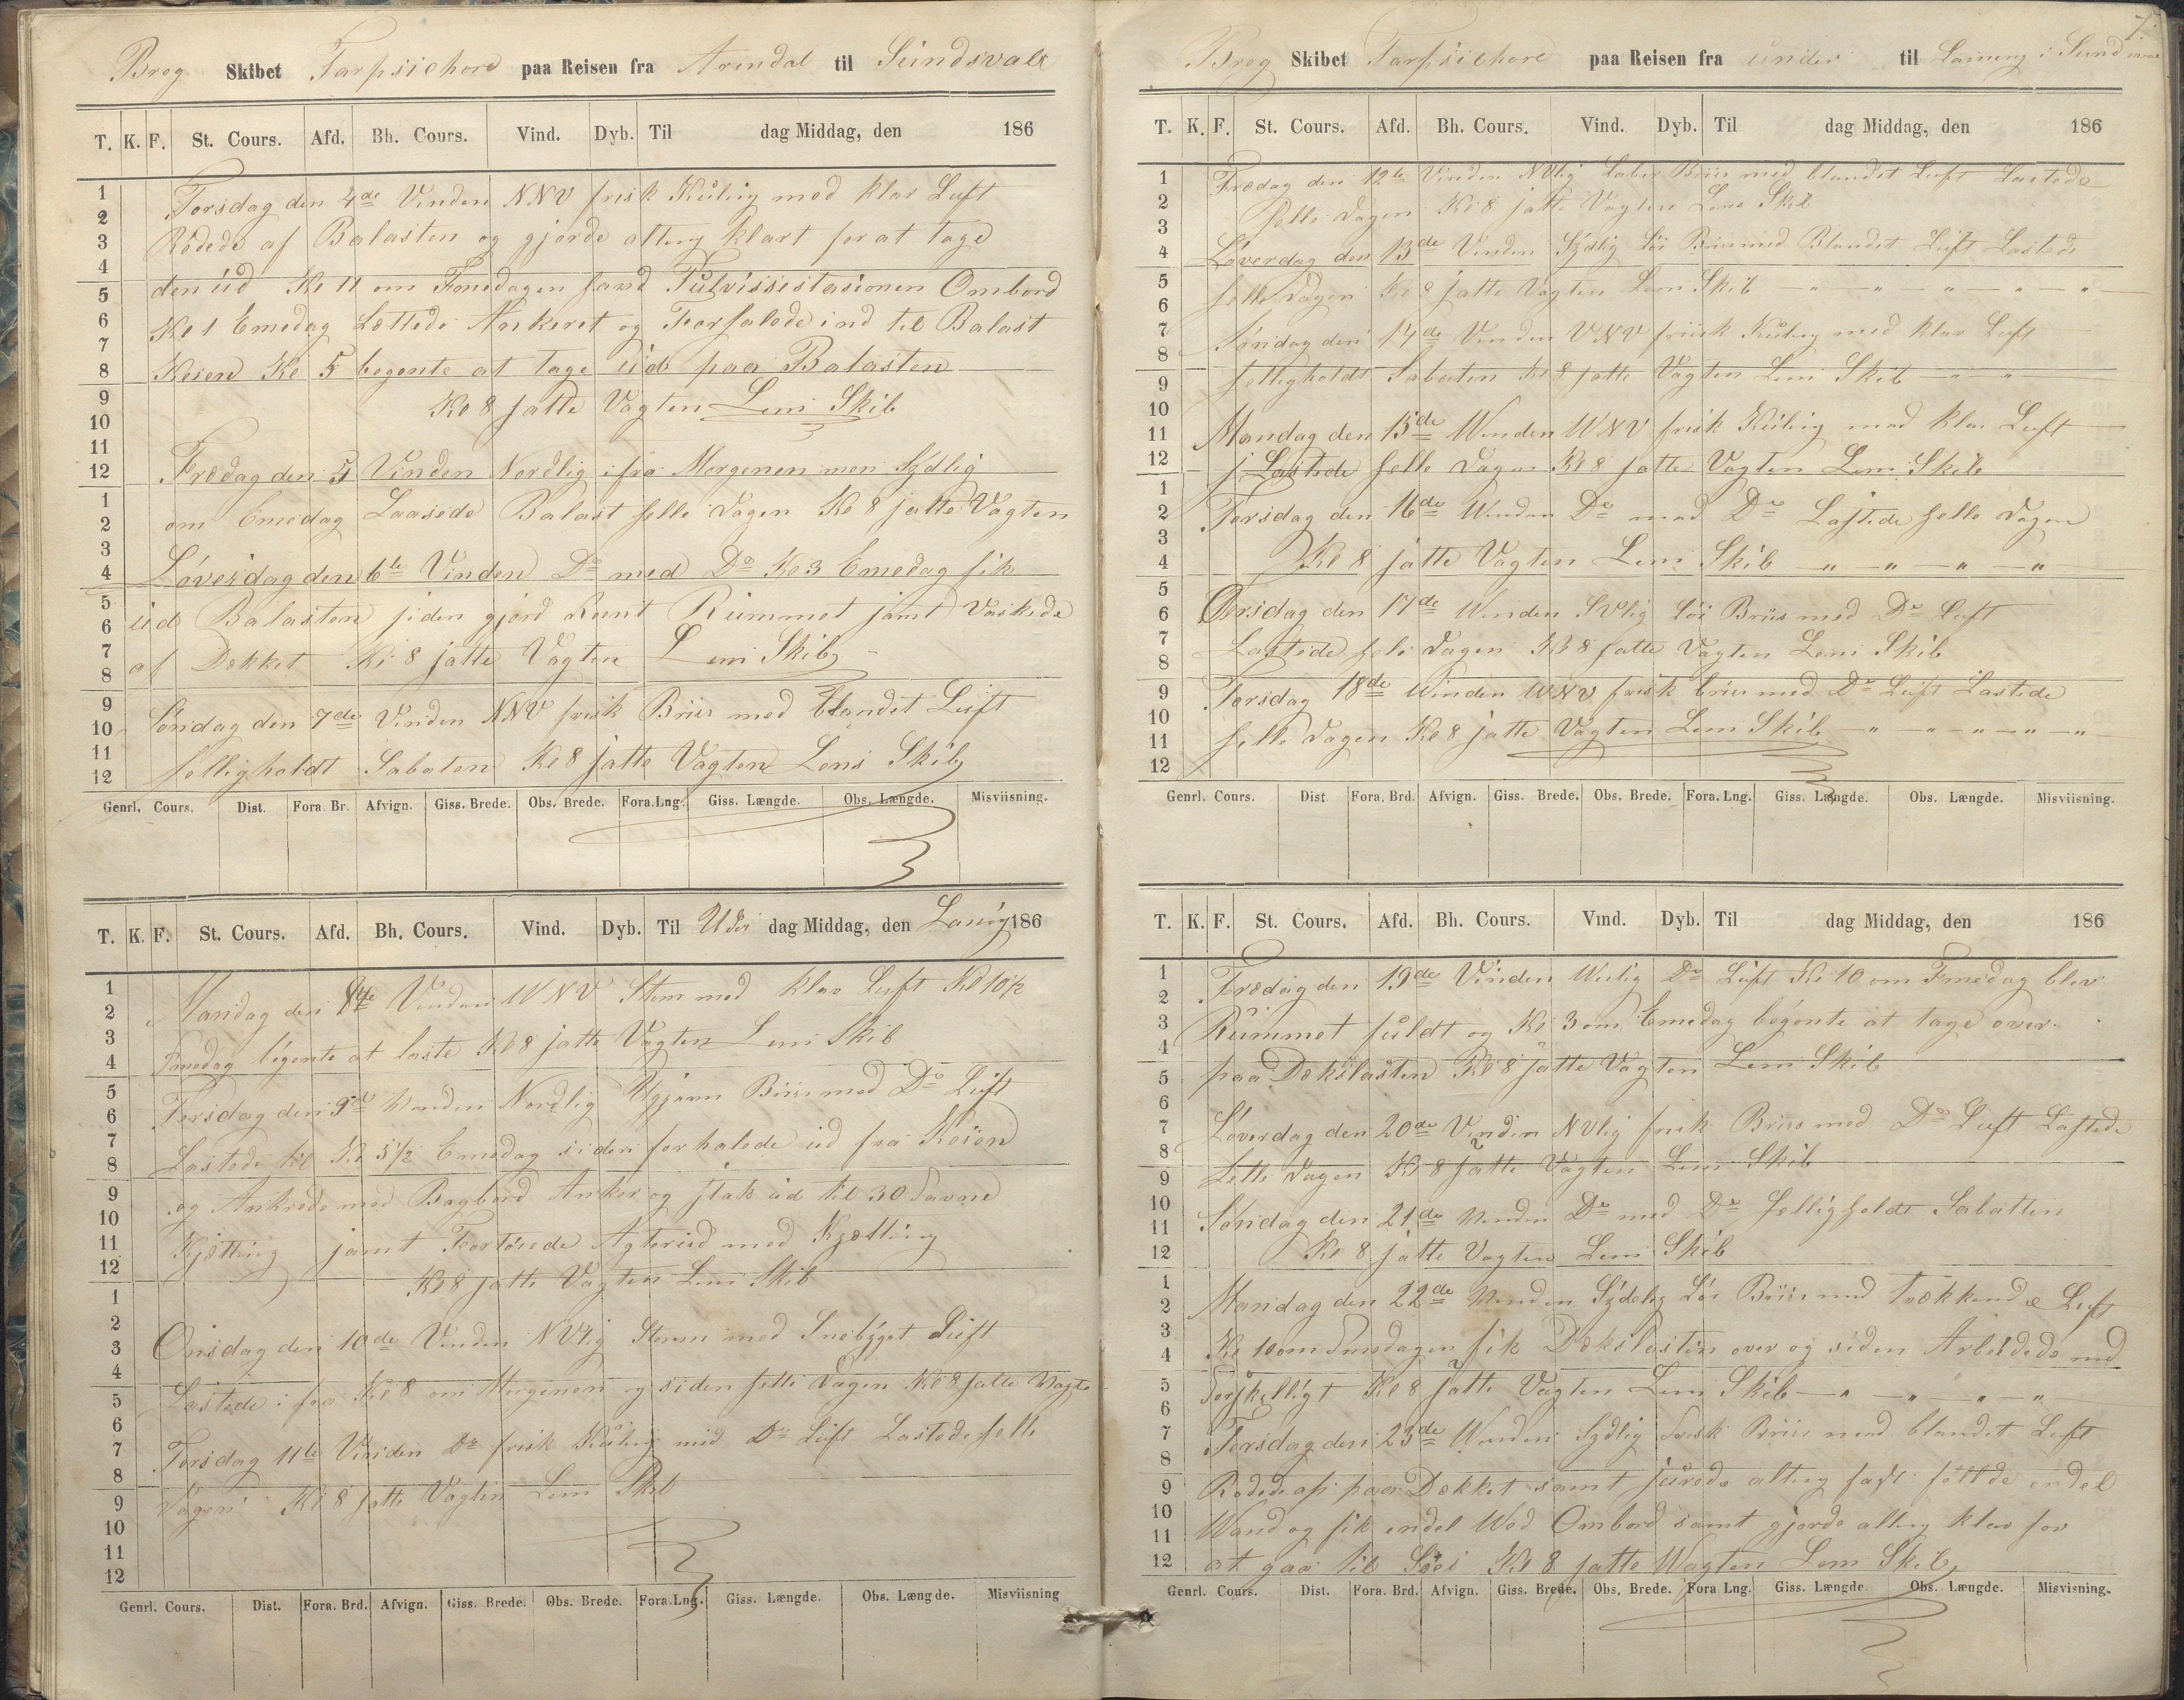 Breg Skibet Tarpsichore paa Reisen fra Arendal til Sundsvall
T. K. F. St. Cours. Afd. Bh. Cours. Vind. Dyb. Til dag Middag, den 186
Torsdag den 4de Vinden NNV frisk Kuling med klar Luft
Rødede af Balasten og gjorde alting klart for at tage
den ud Kl 11 om Formedagen Ombord
Kl 1 Emedag Lettede Ankeret og Forhalede ind til Balast
Keien Kl 5 begente at tage ud paa Balasten
Kl 8 satte Vagten Lens Skib
Fredag den 5 Vinden Nordlig ifra Morgenen men Sydlig
om Emedag Laasede Balast helle Dagen Kl 8 satte Vagten
Løverdag den 6te Vinden Do med Do Kl 3 Emedag fik
ud Balasten siden gjord Reent Rummet samt Vaskede
af Dekket Kl 8 satte Vagten Lens Skib
Søndag den 7de Vinden NNV frisk Briis med blandet Luft
helligholdt Sabaten Kl 8 satte Vagten Lens Skib
Genrl. Cours. Dist. Fora. Br. Afvign. Giss. Brede. Obs. Brede. Fora. Lng. Giss. Længde. Obs. Længde. Misviisning.
T. K. F. St. Cours. Afd. Bh. Cours. Vind. Dyb. Til dag Middag, den 186
Mandag den 8de Vinden WNV Storm med klar Luft Kl 10½
Fmedag begente at laste Kl 8 satte Vagten Lens Skib
Torsdag den 9de Vinden Nordlig Briis med Do Luft
Lastede til Kl 5½ Emedag siden forhalede ud fra Keien
og Ankrede med Bagbord Anker og stak ud til 30 Favne
Kjetting samt Fortøiede Agterud med Kjetting
Kl 8 satte Vagten Lens Skib
Onsdag den 10de Vinden NVlig Storm med Snebyget Luft
Lastede ifra Kl 8 om Morgenen og siden helle Dagen Kl 8 satte Vagte
Torsdag 11te Vinden Do frisk Kuling med Do Luft Lastede helle
Dagen Kl 8 satte Vagten Lens Skib
Genrl. Cours. Dist. Fora. Brd. Afvign. Giss. Brede. Obs. Brede. Fora. Lng. Giss. Længde. Obs. Længde. Misviisning
7.
Breg Skibet Tarpsichore paa Reisen fra under til Lasning i Sundsval
T. K. F. St. Cours. Afd. Bh. Cours. Vind. Dyb. Til dag Middag, den 186
Fredag den 12te Vinden NVlig Laber Briis med blandet Luft Lastede
helle Dagen Kl 8 satte Vagten Lens Skib
Løverdag den 13de Vinden Sydlig Løi Briis med Blandet Luft Lastede
helle Dagen Kl 8 satte Vagten Lens Skib — " — " — " — " — "
Søndag den 14de Vinden VNV friisk Kuling med klar Luft
helligholdt Sabaten Kl 8 satte Vagten Lens Skib — " — "
Mandag den 15de Winden WNV frisk Kuling med klar Luft
Lastede helle Dagen Kl 8 satte Vagten Lens Skib
Torsdag den 16de Winden Do med Do Lastede helle Dagen
Kl 8 satte Vagten Lens Skib — " — " — " — "
Onsdag den 17de Winden SVlig Løi Briis med Do Luft
Lastede hele Dagen Kl 8 satte Vagten Lens Skib
Torsdag 18de Winden WNV frisk briis med Do Luft Lastede
helle Dagen Kl 8 satte Vagten Lens Skib — " — " — " — " — "
Genrl. Cours. Dist Fora. Brd. Afvign. Giss. Brede. Obs. Brede. Fora. Lng. Giss. Længde. Obs. Længde. Misviisning.
T. K. F. St. Cours. Afd. Bh. Cours. Vind. Dyb. Til dag Middag, den 186
Fredag den 19de Vinden Do Luft Kl 10 om Fmedag blev
Rummet fuldt og Kl 3 om Emedag begente at tage over
paa Dekslasten Kl 8 satte Vagten Lens Skib
Løverdag den 20de Vinden NVlig frisk Briis med Do Luft Lastede
helle Dagen Kl 8 satte Vagten Lens Skib
Søndag den 21de Vinden Do med Do helligholdt Sabatten
Kl 8 satte Vagten Lens Skib
Mandag den 22de Vinden Sydelig Løi Briis med Trækkende Luft
Kl 10 om Fmedagen fik Dekslasten over og siden Arbeidede med
Forskelligt Kl 8 satte Vagten Lens Skib — " — " — " — "
Torsdag den 23de Winden Sydlig frisk Briis med blandet Luft
Rødede op paa Dekket samt surede alting fast endel
Wand og fik endel Wed Ombord samt gjorde alting klar for
at gaa til Søes Kl 8 satte Wagten Lens Skib
Genrl. Cours. Dist. Fora. Brd. Afvign. Giss. Brede. Obs. Brede. Fora Lng. Giss. Længde. Obs. Længde. Misvisning.